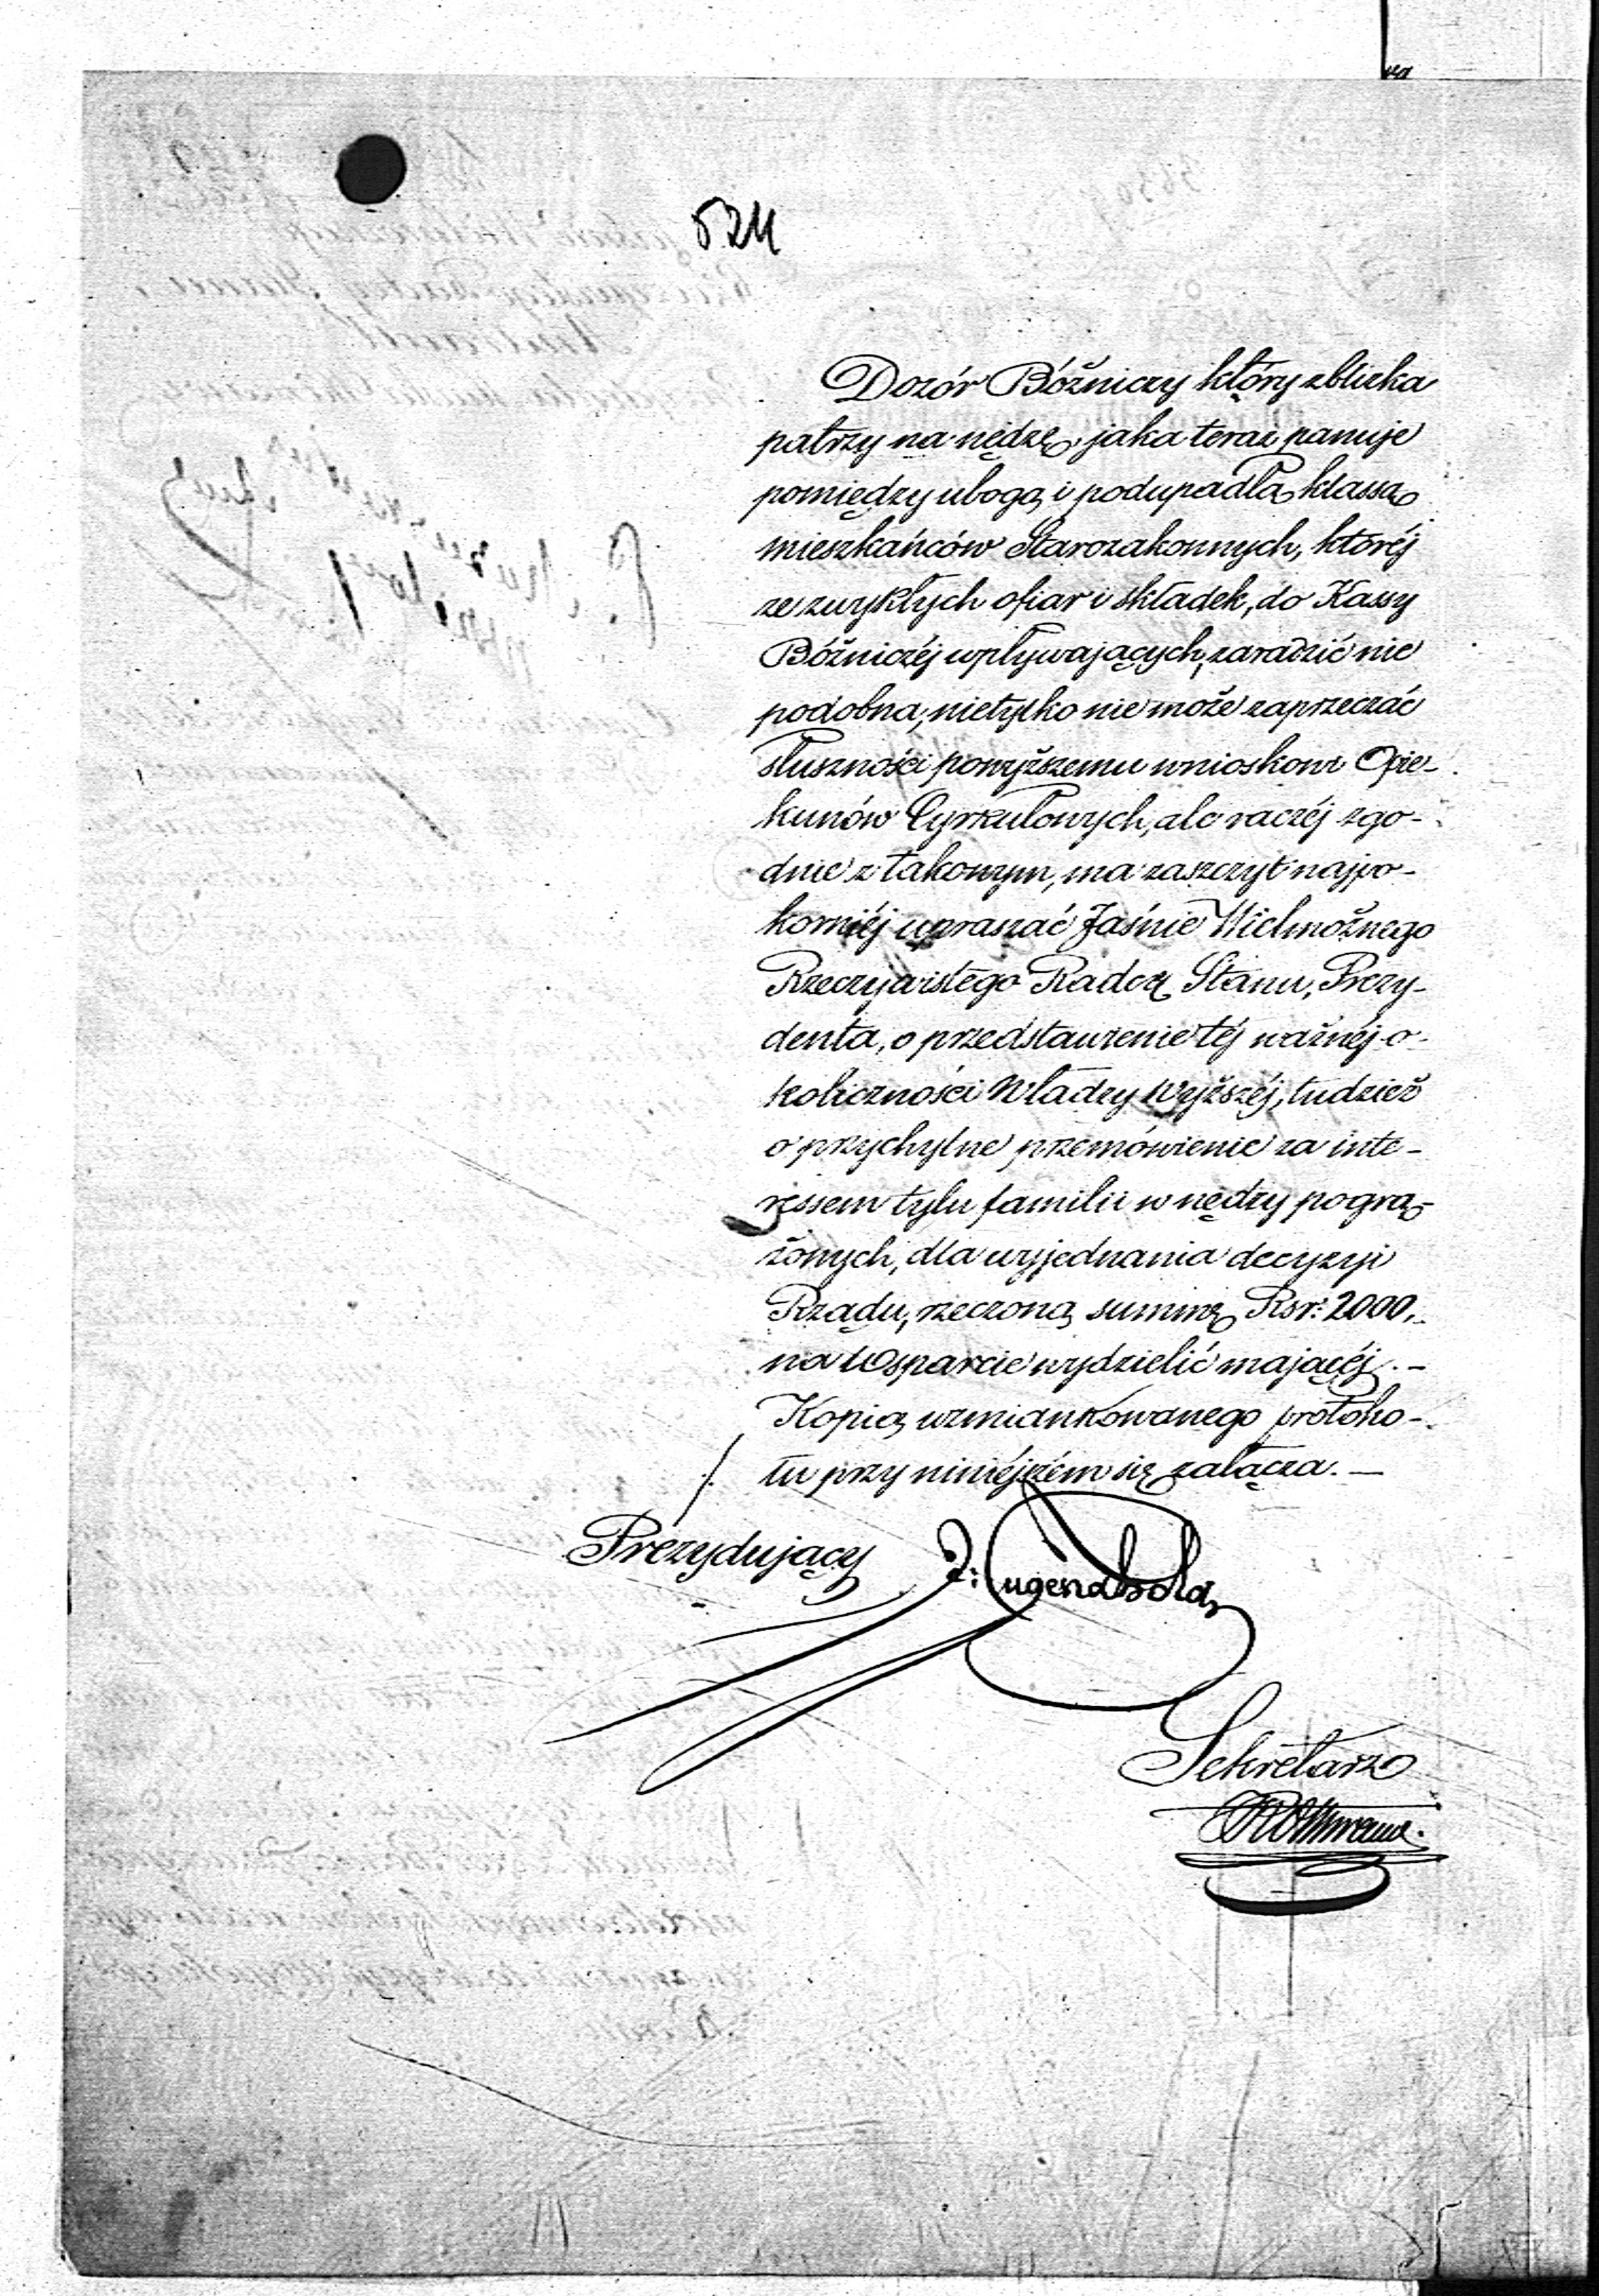 524
Dozór Bóżniczy który zblizka
patrzy na nędzę, jaka teraz panuje
pomiędzy ubogą i podupadłą klassą
mieszkańców Starozakonnych, któréj
ze zwykłych ofiar i składek, do Kassy
Bóżniczéj wpływających, zaradzić nie
podobna, nietylko nie może zaprzeczać
słuszności powyższemu wnioskowi Opie-
kunów Cyrkułowych, ale raczéj zgo-
dnie z takowym, ma zaszczyt najpo-
korniéj upraszać Jaśnie Wielmożnego
Rzeczywistego Radcę Stanu, Prezy-
denta, o przedstawienie téj ważnéj o-
koliczności Władzy Wyższéj, tudzież
o przychylne przemówienie za inte-
ressem tylu familii w nędzy pogrą-
żonych, dla wyjednania decyzyi
Rządu, rzeczoną summę Rsr: 2000,
na Wsparcie wydzielić mającéj. -
Kopią wzmiankowanego protoko-
łu przy niniéjszém się załącza. —
Prezydujący J: Tugendhold
Sekretarz